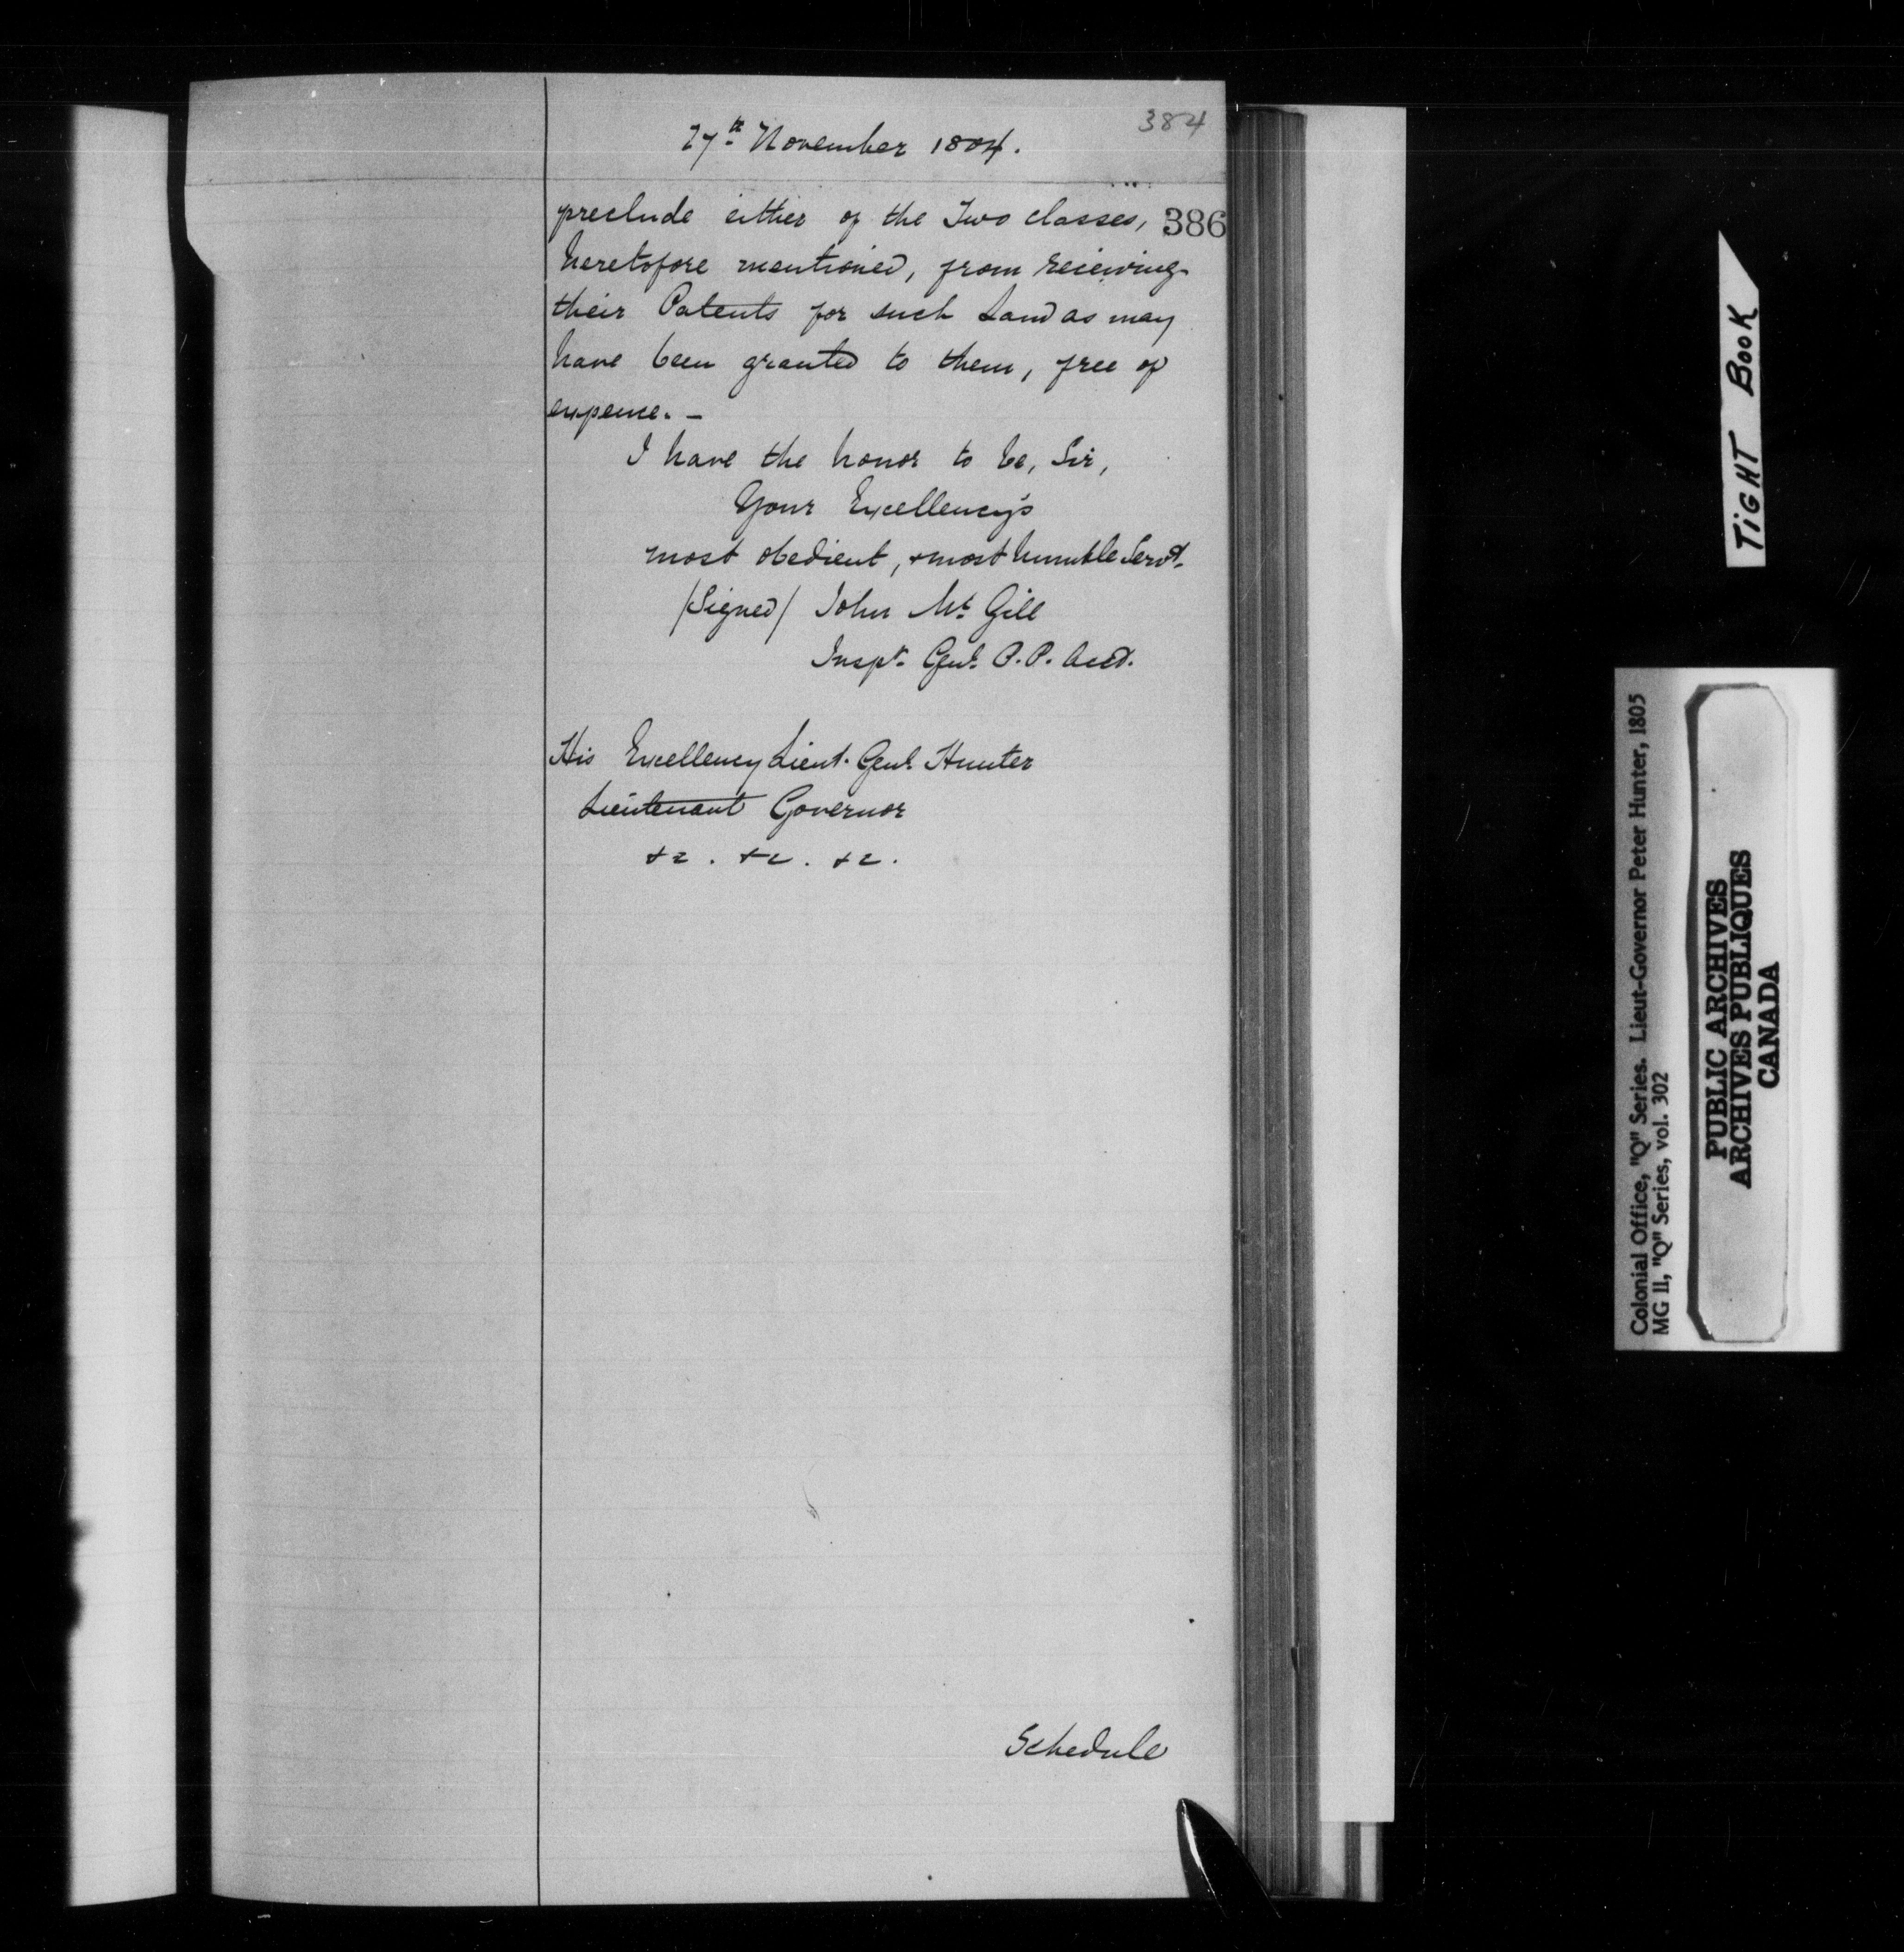 384
27th November 1804.
386
preclude either of the Two classes,
heretofore mentioned, from receiving
their Patents for such Land as may
have been granted to them, free of
expence. –
I have the honor to be, Sir,
Your Excellency's
most obedient, & most humble Servt.
/Signed/ John Mc Gill
Inspr. Genl. P. P. Acct.
His Excellency Lieut. Genl. Hunter
Lieutenant Governor
&c. &c. &c.
Schedule
TIGHT BOOK
Colonial Office, "Q" Series. Lieut-Governor Peter Hunter, 1805
MG 11, "Q" Series, vol. 302
PUBLIC ARCHIVES
ARCHIVES PUBLIQUES
CANADA